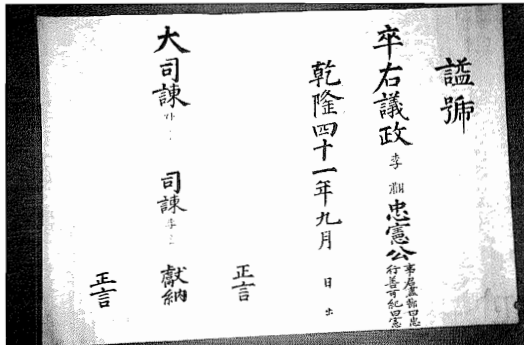 諡號
卒右議政 李 忠憲公
事君盡節曰忠
行善可紀曰憲
乾隆四十一年九月 日
正言
大司諫 司諫 李 獻納
正言